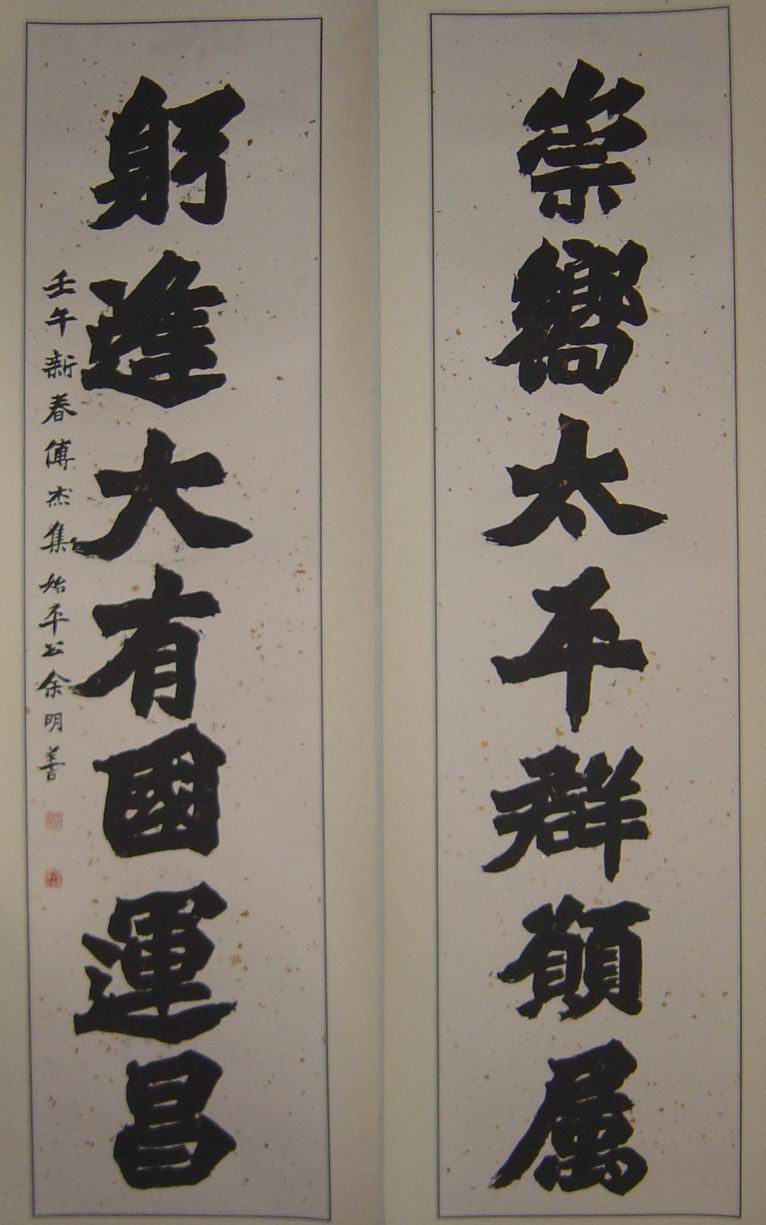 崇嚮太平群願属
躬逢大有國運昌
壬午新春傅杰集始平公余明善